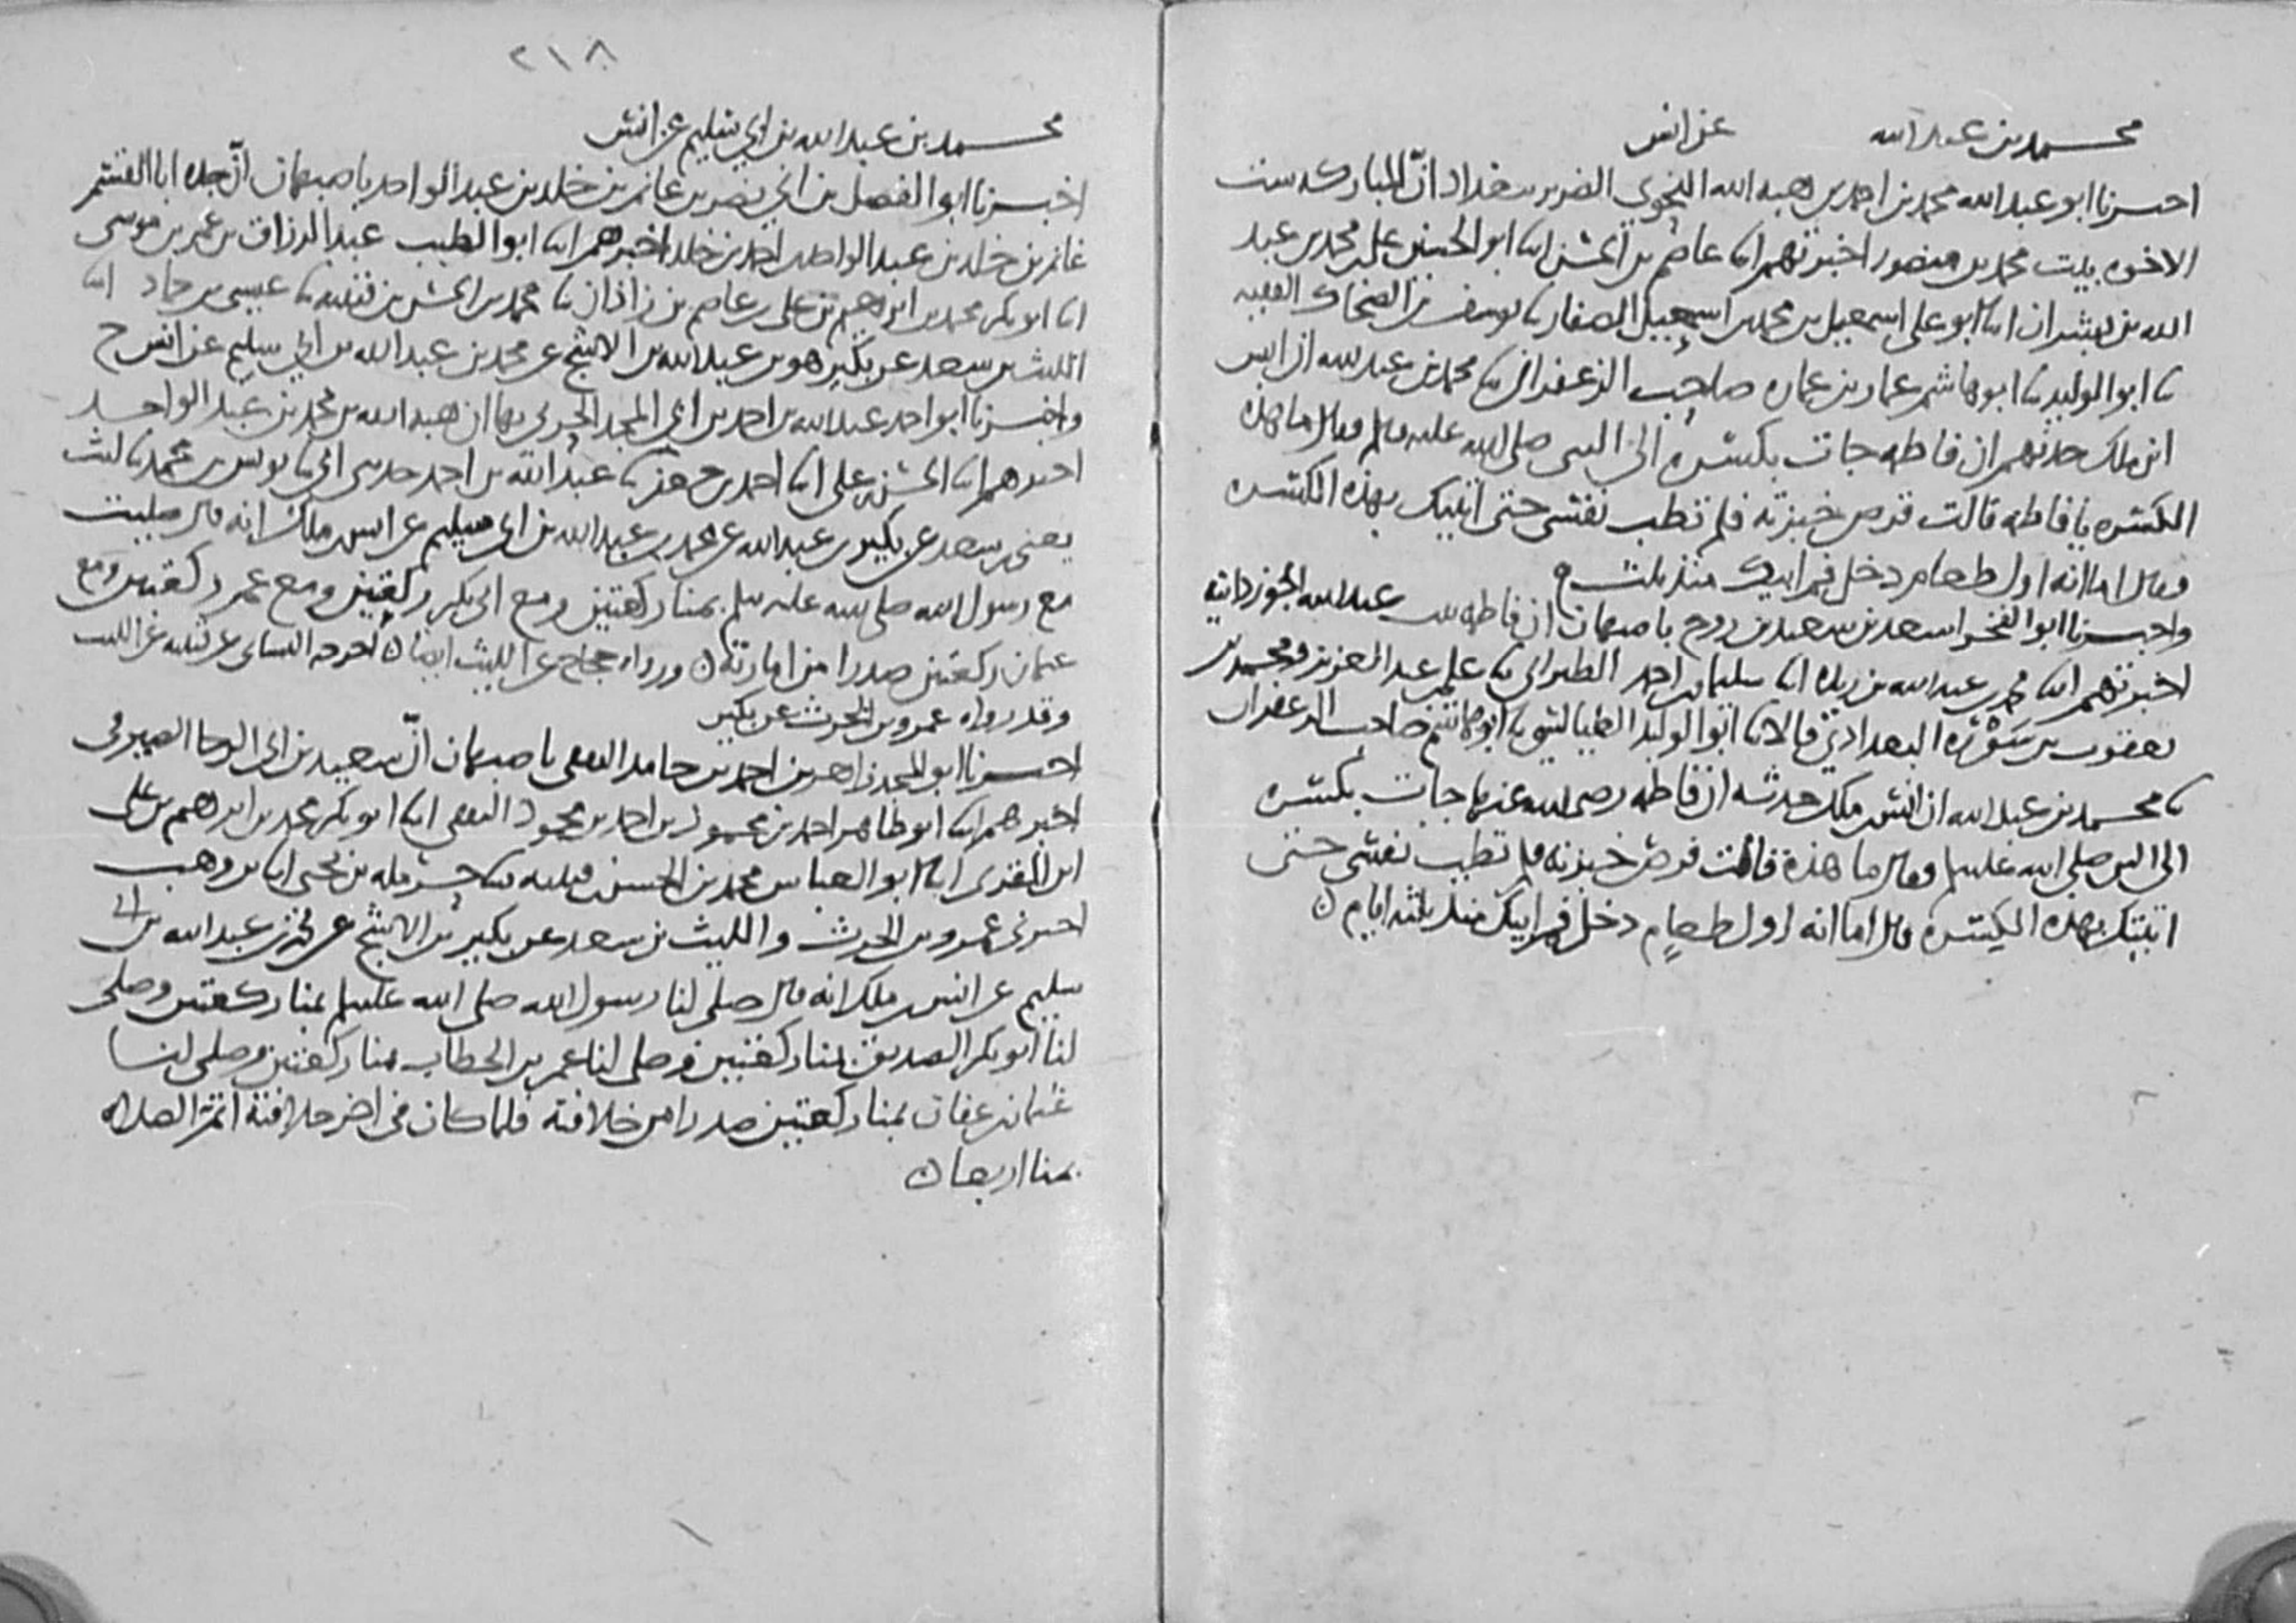 محمد بن عبد الله عن انس
اخبرنا ابو عبد الله محمد بن احمد بن هبة الله النحوي الضرير ببغداد ان المباركة ست
الاخوه بنت محمد بن منصور اخبرتهم ابنا عاصم بن الحسن ابنا ابو الحسين علي بن محمد بن عبد
الله بن بشران ابنا ابو علي اسمعيل بن محمد بن اسمعيل الصفار ثنا يوسف بن الضحاك الفقيه
ثنا ابو الوليد ثنا ابو هاشم عمار بن عماره صاحب الزعفراني ثنا محمد بن عبد الله ان انس
ابن ملك حدثهم ان فاطمه جات بكسره الى النبي صلى الله عليه وسلم وقال ما هذه
الكسره يا فاطمه قالت قرص خبزته فلم تطب نفسي حتى اتيتك بهذه الكسره
وقال اما انه اول طعام دخل فم ابيك منذ ثلث
واخبرنا ابو الفخر اسعد بن سعيد بن روح باصبهان ان فاطمه بنت عبد الله الجوزدانية
اخبرتهم ابنا محمد بن عبد الله بن ريذه ابنا سليمان بن احمد الطبراني ثنا علي بن عبد العزيز ومحمد بن
يعقوب بن سورة البغدادي قالا ثنا ابو الوليد الطيالسي ثنا ابو هاشم صاحب الزعفران
ثنا محمد بن عبد الله ان انس بن ملك حدثه ان فاطمه رضي الله عنها جات بكسره
الى النبي صلى الله عليه وسلم وقال ما هذة قالت قرص خبزته فلم تطب نفسي حتى
اتيتك بهذه الكسره قال اما انه اول طعام دخل فم ابيك منذ ثلثه ايام ن
٢١٨
محمد بن عبد الله بن ابي سليم عن انس
اخبرنا ابو الفضل بن ابي نصر بن غانم بن خلد بن عبد الواحد باصبهان ان جده ابا القسم
غانم بن خلد بن عبد الواحد بن احمد بن خلد اخبرهم ابنا ابو الطيب عبد الرزاق بن عمر بن موسى
ابنا ابو بكر محمد بن ابرهيم بن علي بن عاصم بن زاذان ثنا محمد بن الحسن بن قتيبه ثنا عيسى بن حماد ابنا
الليث بن سعد عن بكير هو بن عبد الله بن الاشج عن محمد بن عبد الله بن ابي سليم عن انس ح
واخبرنا ابو احمد عبد الله بن احمد بن ابي المجد الحربي بها ان هبة الله بن محمد بن عبد الواحد
اخبرهم ابنا الحسن بن علي ابنا احمد بن جعفر ثنا عبد الله بن احمد حدثني ابي ثنا يونس بن محمد ثنا ليث
يعني بن سعد عن بكير بن عبد الله عن محمد بن عبد الله بن ابي سليم عن انس بن ملك انه قال صليت
مع رسول الله صلى الله عليه وسلم بمنا ركعتين ومع ابي بكر ركعتين ومع عمر ركعتين ومع
عثمان ركعتين صدرا من امارته ن ورواه حجاج عن الليث ايضا ن اخرجه النسائي عن قتيبه عن الليث
وقد رواه عمرو بن الحرث عن بكير
اخبرنا ابو المجد زاهر بن احمد بن حامد الثقفي باصبهان ان سعيد بن ابي الرجا الصيرفي
اخبرهم ابنا ابو طاهر احمد بن محمود بن احمد بن محمود الثقفي ابنا ابو بكر محمد بن ابرهيم بن علي
ابن المقرئ ابنا ابو العباس محمد بن الحسن بن قتيبه ثنا حرمله بن يحيى ابنا بن وهب
اخبرني عمرو بن الحرث والليث بن سعد عن بكير بن الاشج عن محمد بن عبد الله بن ابي
سليم عن انس بن ملك انه قال صلى لنا رسول الله صلى الله عليه وسلم بمنا ركعتين وصلى
لنا ابو بكر الصديق بمنا ركعتين وصلى لنا عمر بن الخطاب بمنا ركعتين وصلى لنا
عثمان بن عفان بمنا ركعتين صدرا من خلافته فلما كان في اخر خلافته اتم الصلاه
بمنا اربعا ن